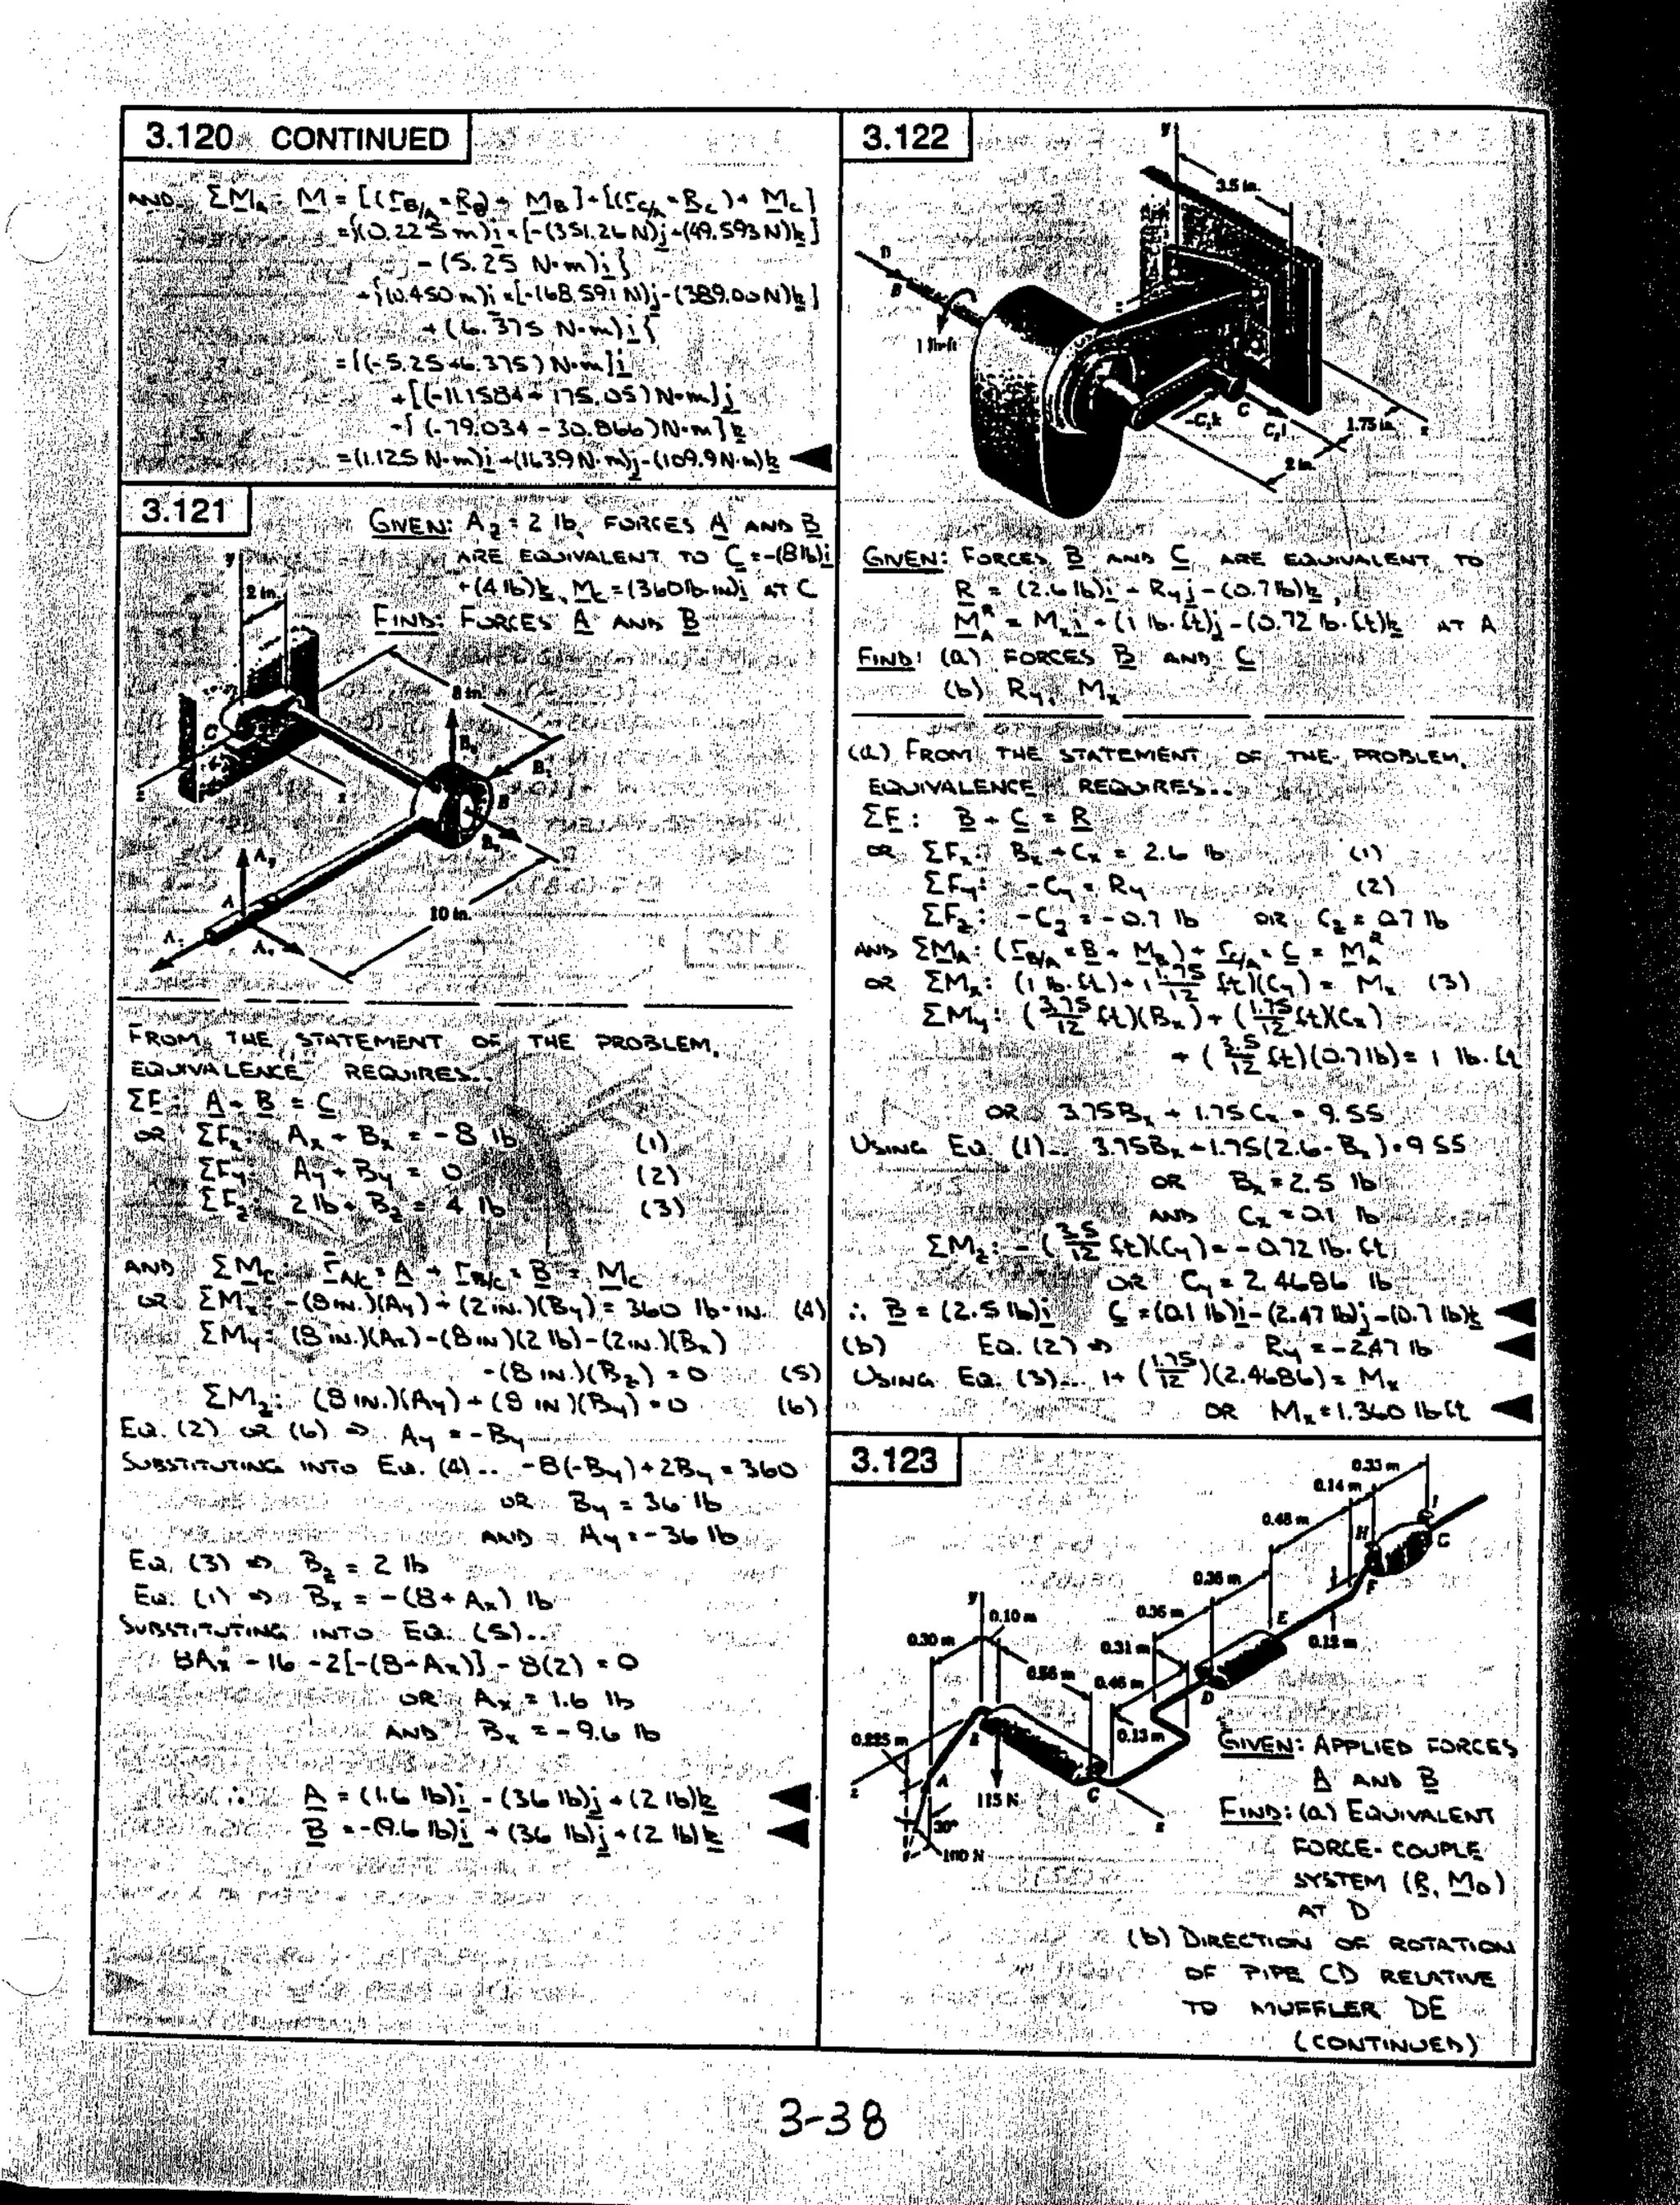 3.120 CONTINUED
AND ΣM_A: M = [(r_B/A × R_B) + M_B] + [(r_C/A × R_C) + M_C]
= {(0.225 m)i × [-(351.26 N)j - (49.593 N)k]
- (5.25 N·m)i}
+ {(0.450 m)i × [-(68.591 N)j - (389.00 N)k]
+ (6.375 N·m)i}
= [(-5.25 + 6.375) N·m]i
+ [(-11.1584 + 175.05) N·m]j
+ [(-79.034 - 30.866) N·m]k
= (1.125 N·m)i + (163.9 N·m)j - (109.9 N·m)k
3.121
GIVEN: A_z = 2 lb, FORCES A AND B
ARE EQUIVALENT TO C = -(8 lb)i
+ (4 lb)k, M_C = (360 lb·in)i AT C
FIND: FORCES A AND B
y
2 in.
8 in.
C
B_y
B_z
B
z
x
B_x
A_y
A
10 in.
A_z
A_x
FROM THE STATEMENT OF THE PROBLEM,
EQUIVALENCE REQUIRES..
ΣF: A + B = C
OR ΣF_x: A_x + B_x = -8 lb (1)
ΣF_y: A_y + B_y = 0 (2)
ΣF_z: 2 lb + B_z = 4 lb (3)
AND ΣM_C: r_A/C × A + r_B/C × B = M_C
OR ΣM_x: -(8 IN.)(A_y) + (2 IN.)(B_y) = 360 lb·IN. (4)
ΣM_y: (8 IN.)(A_x) - (8 IN)(2 lb) - (2 IN.)(B_x)
- (8 IN.)(B_z) = 0 (5)
ΣM_z: (8 IN.)(A_y) + (8 IN)(B_y) = 0 (6)
EQ. (2) OR (6) ⇒ A_y = -B_y
SUBSTITUTING INTO EQ. (4).. -8(-B_y) + 2B_y = 360
OR B_y = 36 lb
AND A_y = -36 lb
EQ. (3) ⇒ B_z = 2 lb
EQ. (1) ⇒ B_x = -(8 + A_x) lb
SUBSTITUTING INTO EQ. (5)..
8A_x - 16 - 2[-(8+A_x)] - 8(2) = 0
OR A_x = 1.6 lb
AND B_x = -9.6 lb
∴ A = (1.6 lb)i - (36 lb)j + (2 lb)k
B = -(9.6 lb)i + (36 lb)j + (2 lb)k
3.122
y
3.5 in.
B
1 lb·ft
-C_z k
C
C_x i
1.75 in.
x
2 in.
GIVEN: FORCES B AND C ARE EQUIVALENT TO
R = (2.6 lb)i + R_y j - (0.7 lb)k,
M_A^R = M_x i + (1 lb·ft)j - (0.72 lb·ft)k AT A
FIND: (a) FORCES B AND C
(b) R_y, M_x
(a) FROM THE STATEMENT OF THE PROBLEM,
EQUIVALENCE REQUIRES..
ΣF: B + C = R
OR ΣF_x: B_x + C_x = 2.6 lb (1)
ΣF_y: -C_y = R_y (2)
ΣF_z: -C_z = -0.7 lb OR C_z = 0.7 lb
AND ΣM_A: (r_B/A × B + M_B) + r_C/A × C = M_A^R
OR ΣM_x: (1 lb·ft) + (1.75/12 ft)(C_y) = M_x (3)
ΣM_y: (3.75/12 ft)(B_x) + (1.75/12 ft)(C_x)
+ (3.5/12 ft)(0.7 lb) = 1 lb·ft
OR 3.75B_x + 1.75C_x = 9.55
USING EQ. (1).. 3.75B_x + 1.75(2.6 - B_x) = 9.55
OR B_x = 2.5 lb
AND C_x = 0.1 lb
ΣM_z: -(3.5/12 ft)(C_y) = -0.72 lb·ft
OR C_y = 2.4686 lb
∴ B = (2.5 lb)i C = (0.1 lb)i - (2.47 lb)j - (0.7 lb)k
(b) EQ. (2) ⇒ R_y = -2.47 lb
USING EQ. (3)... 1 + (1.75/12)(2.4686) = M_x
OR M_x = 1.360 lb·ft
3.123
0.33 m
0.14 m
0.48 m
H
I
G
0.36 m
F
y
0.10 m
0.35 m
E
0.12 m
0.30 m
0.31 m
0.56 m
0.46 m
D
0.225 m
0.13 m
A
z
115 N
C
x
30°
100 N
GIVEN: APPLIED FORCES
A AND B
FIND: (a) EQUIVALENT
FORCE-COUPLE
SYSTEM (R, M_D)
AT D
(b) DIRECTION OF ROTATION
OF PIPE CD RELATIVE
TO MUFFLER DE
(CONTINUED)
3-38